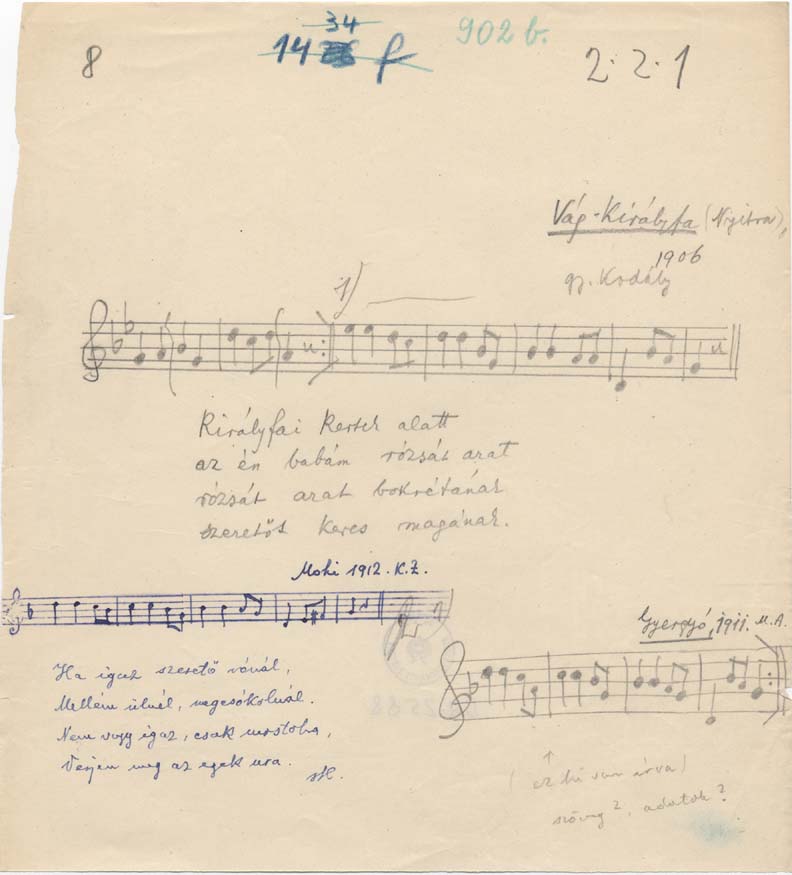 34
8
14
f
902 b.
2·2·1
Vág-Királyfa (Nyitra),
1906
gy. Kodály
1)
Királyfai kertek alatt
az én babám rózsát arat
rózsát arat bokrétának
szeretőt keres magának.
Mohi 1912. K.Z.
Gyergyó, 1911. M.A.
Ha igaz szerető vónál,
Mellém ülnél, megcsókolnál.
Nem vagy igaz, csak
Verjen meg az egek ura.
(ez ki van írva)
szöveg?, adatok?